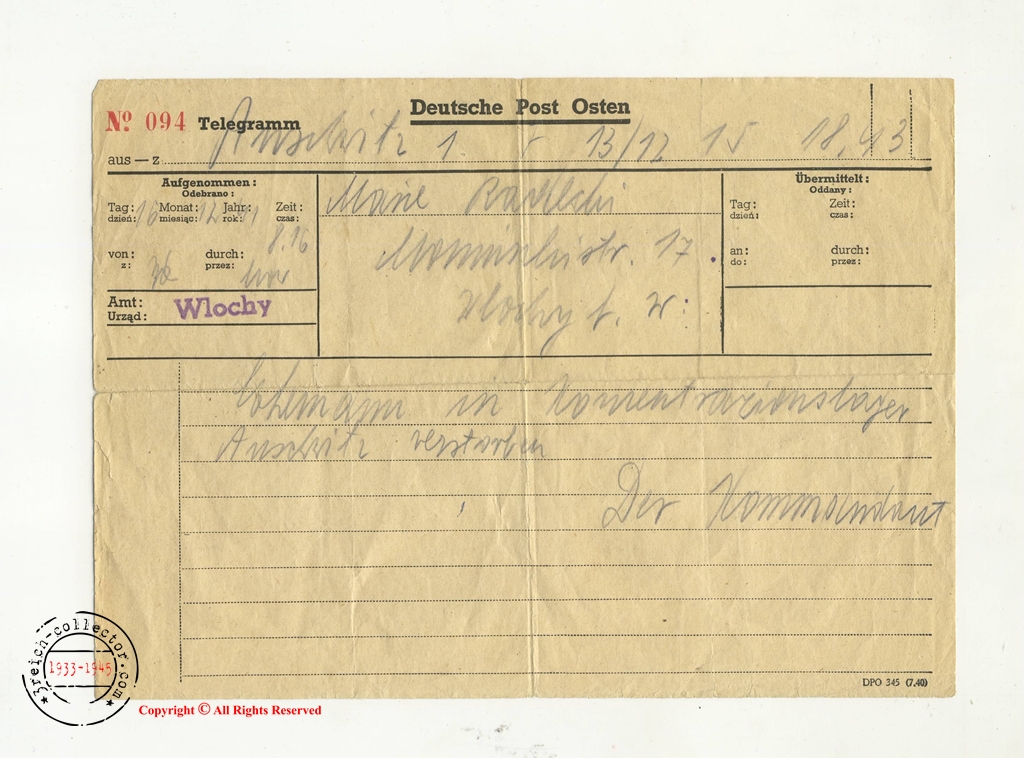 Deutsche Post Osten
Nº 094 Telegramm
aus — z Auschwitz 1. 13/12 15 18,43
Aufgenommen:
Odebrano:
Tag: Monat: Jahr: Zeit:
dzień: miesiąc: 12 rok: czas:
8.16
von: durch:
z: przez:
Amt:
Urząd: Wlochy
Marie
str. 17.
Wlochy b. W.
Übermittelt:
Oddany:
Tag: Zeit:
dzień: czas:
an: durch:
do: przez:
Ehemann in Konzentrazionslager
Auschwitz verstorben
Der Kommandant
DPO 345 (7.40)
3reich-collector.com
1933-1945
Copyright © All Rights Reserved